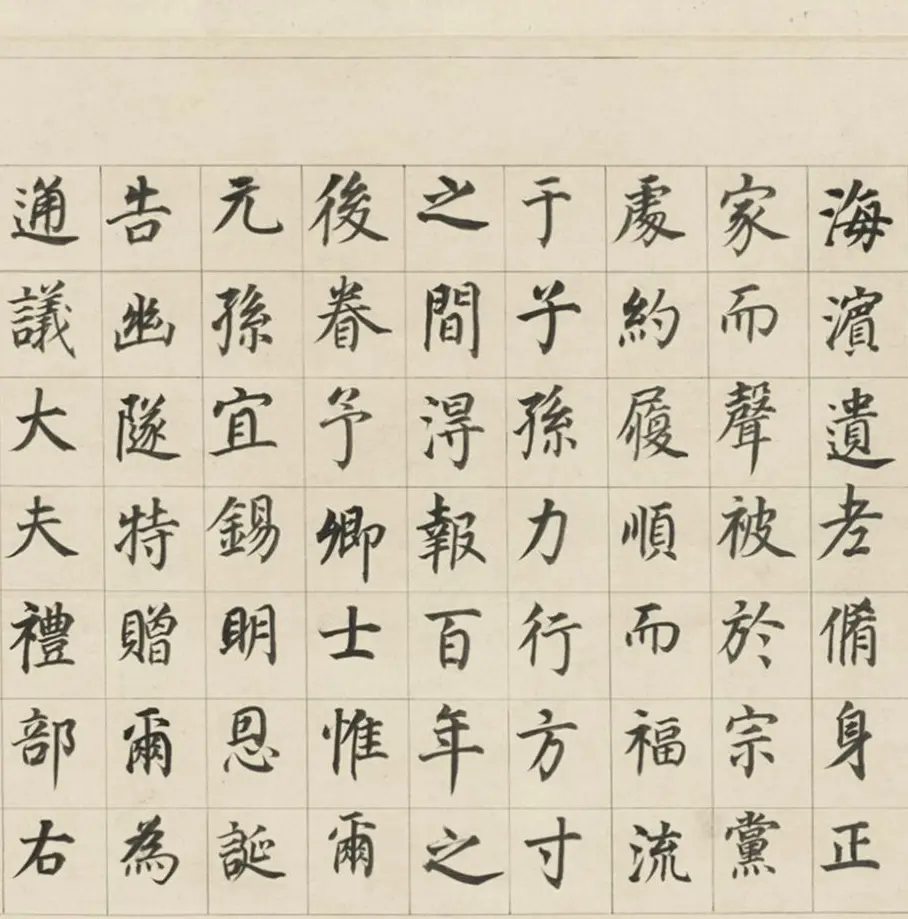 海濱遺老脩身正
家而聲被於宗黨
處約履順而福流
于子孫力行方寸
之間得報百年之
後眷予卿士惟爾
元孫宜錫明恩誕
告幽隧特贈爾為
通議大夫禮部右